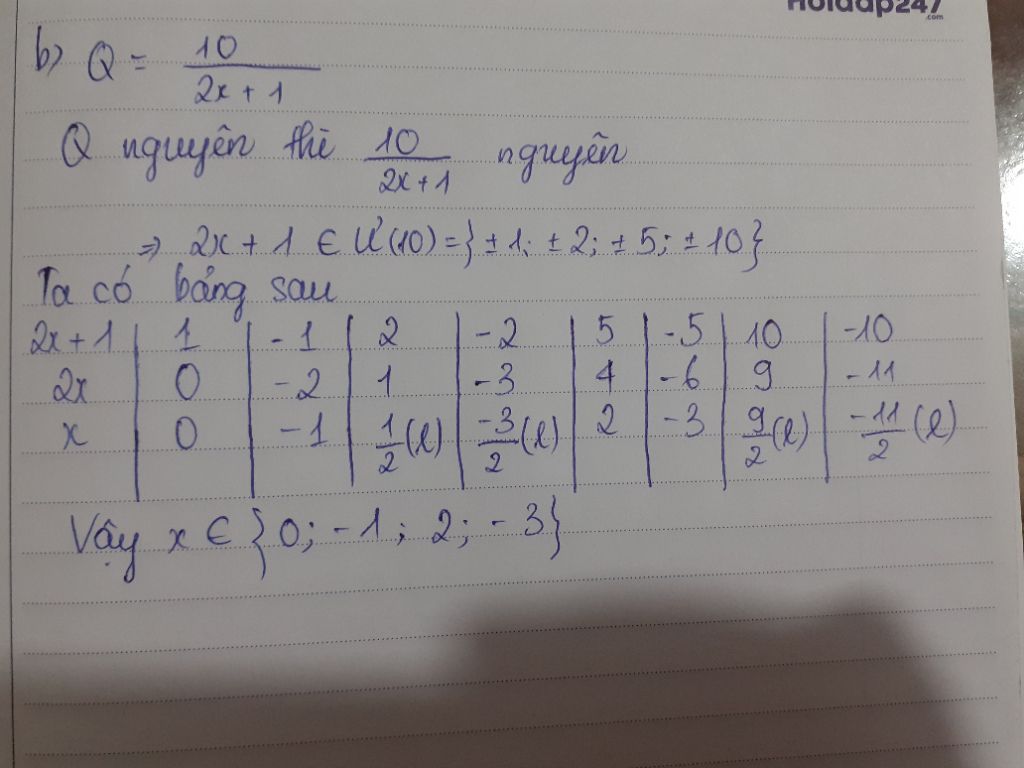 Hoidap247
.com
b) Q = 10 / 2x + 1
Q nguyên thì 10 / 2x + 1 nguyên
=> 2x + 1 ∈ Ư(10) = {±1; ±2; ±5; ±10}
Ta có bảng sau
2x + 1 | 1 | -1 | 2 | -2 | 5 | -5 | 10 | -10
2x | 0 | -2 | 1 | -3 | 4 | -6 | 9 | -11
x | 0 | -1 | 1/2 (l) | -3/2 (l) | 2 | -3 | 9/2 (l) | -11/2 (l)
Vậy x ∈ {0; -1; 2; -3}